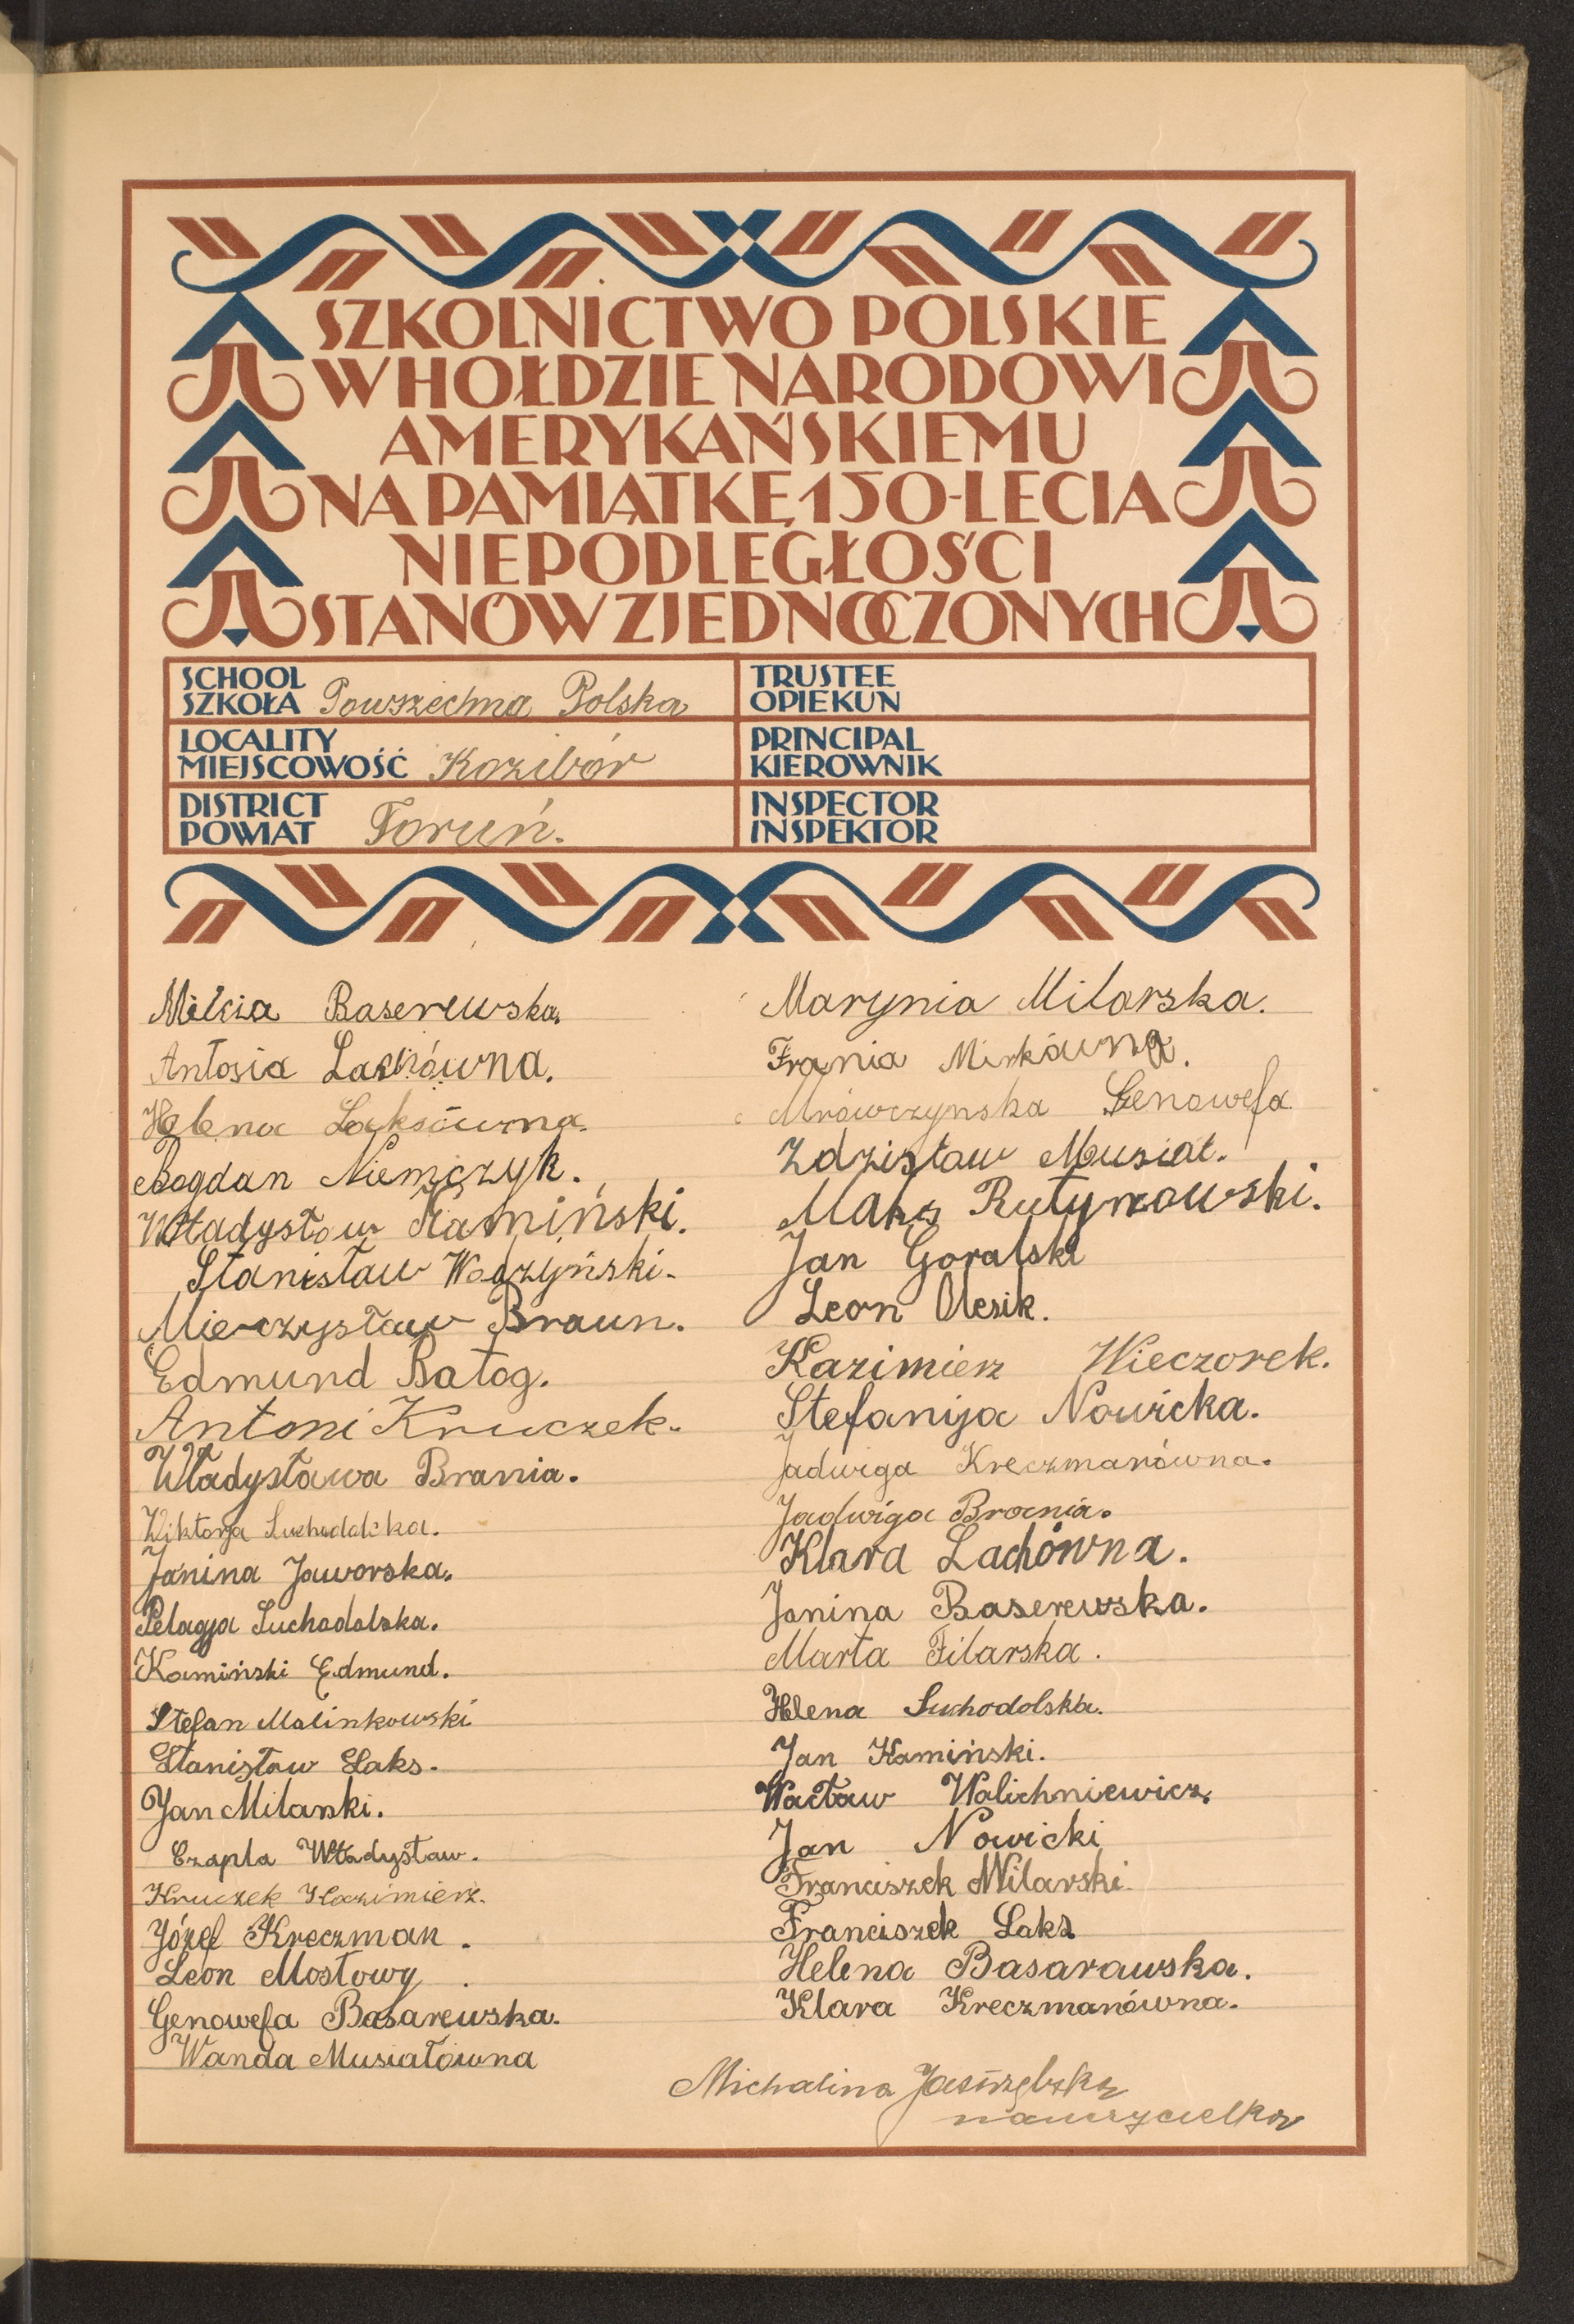 SZKOLNICTWO POLSKIE
W HOŁDZIE NARODOWI
AMERYKAŃSKIEMU
NA PAMIĄTKĘ 150-LECIA
NIEPODLEGŁOŚCI
STANÓW ZJEDNOCZONYCH
SCHOOL
SZKOŁA Powszechna Polska
LOCALITY
MIEJSCOWOŚĆ Kozibór
DISTRICT
POWIAT Toruń.
TRUSTEE
OPIEKUN
PRINCIPAL
KIEROWNIK
INSPECTOR
INSPEKTOR
Milcia Baserewska.
Antosia Lachówna.
Helena Laksówna.
Bogdan Niemczyk.
Władysław Kamiński.
Stanisław Wodzyński.
Mieczysław Braun.
Edmund Batog.
Antoni Kruczek.
Władysława Brania.
Wiktorja Suchodolska.
Janina Jaworska.
Pelagja Suchodolska.
Kamiński Edmund.
Stefan Malinkowski
Stanisław Laks.
Jan Milarski.
Czapla Władysław.
Kruczek Kazimierz.
Józef Kreczman.
Leon Mostowy.
Genowefa Basarewska.
Wanda Musiałówna
Marynia Milarska.
Frania Mirkówna.
Mrówczynska Genowefa
Zdzisław Musiał.
Maks Rutynowski.
Jan Goralski
Leon Olesik.
Kazimierz Wieczorek.
Stefanija Nowicka.
Jadwiga Kreczmanówna.
Jadwiga Brania.
Klara Lachówna.
Janina Baserewska.
Marta Filarska.
Helena Suchodolska.
Jan Kamiński.
Wacław Walichniewicz.
Jan Nowicki
Franciszek Milarski.
Franciszek Laks
Helena Basarawska.
Klara Kreczmanówna.
Michalina Jastrzębska
nauczycielka